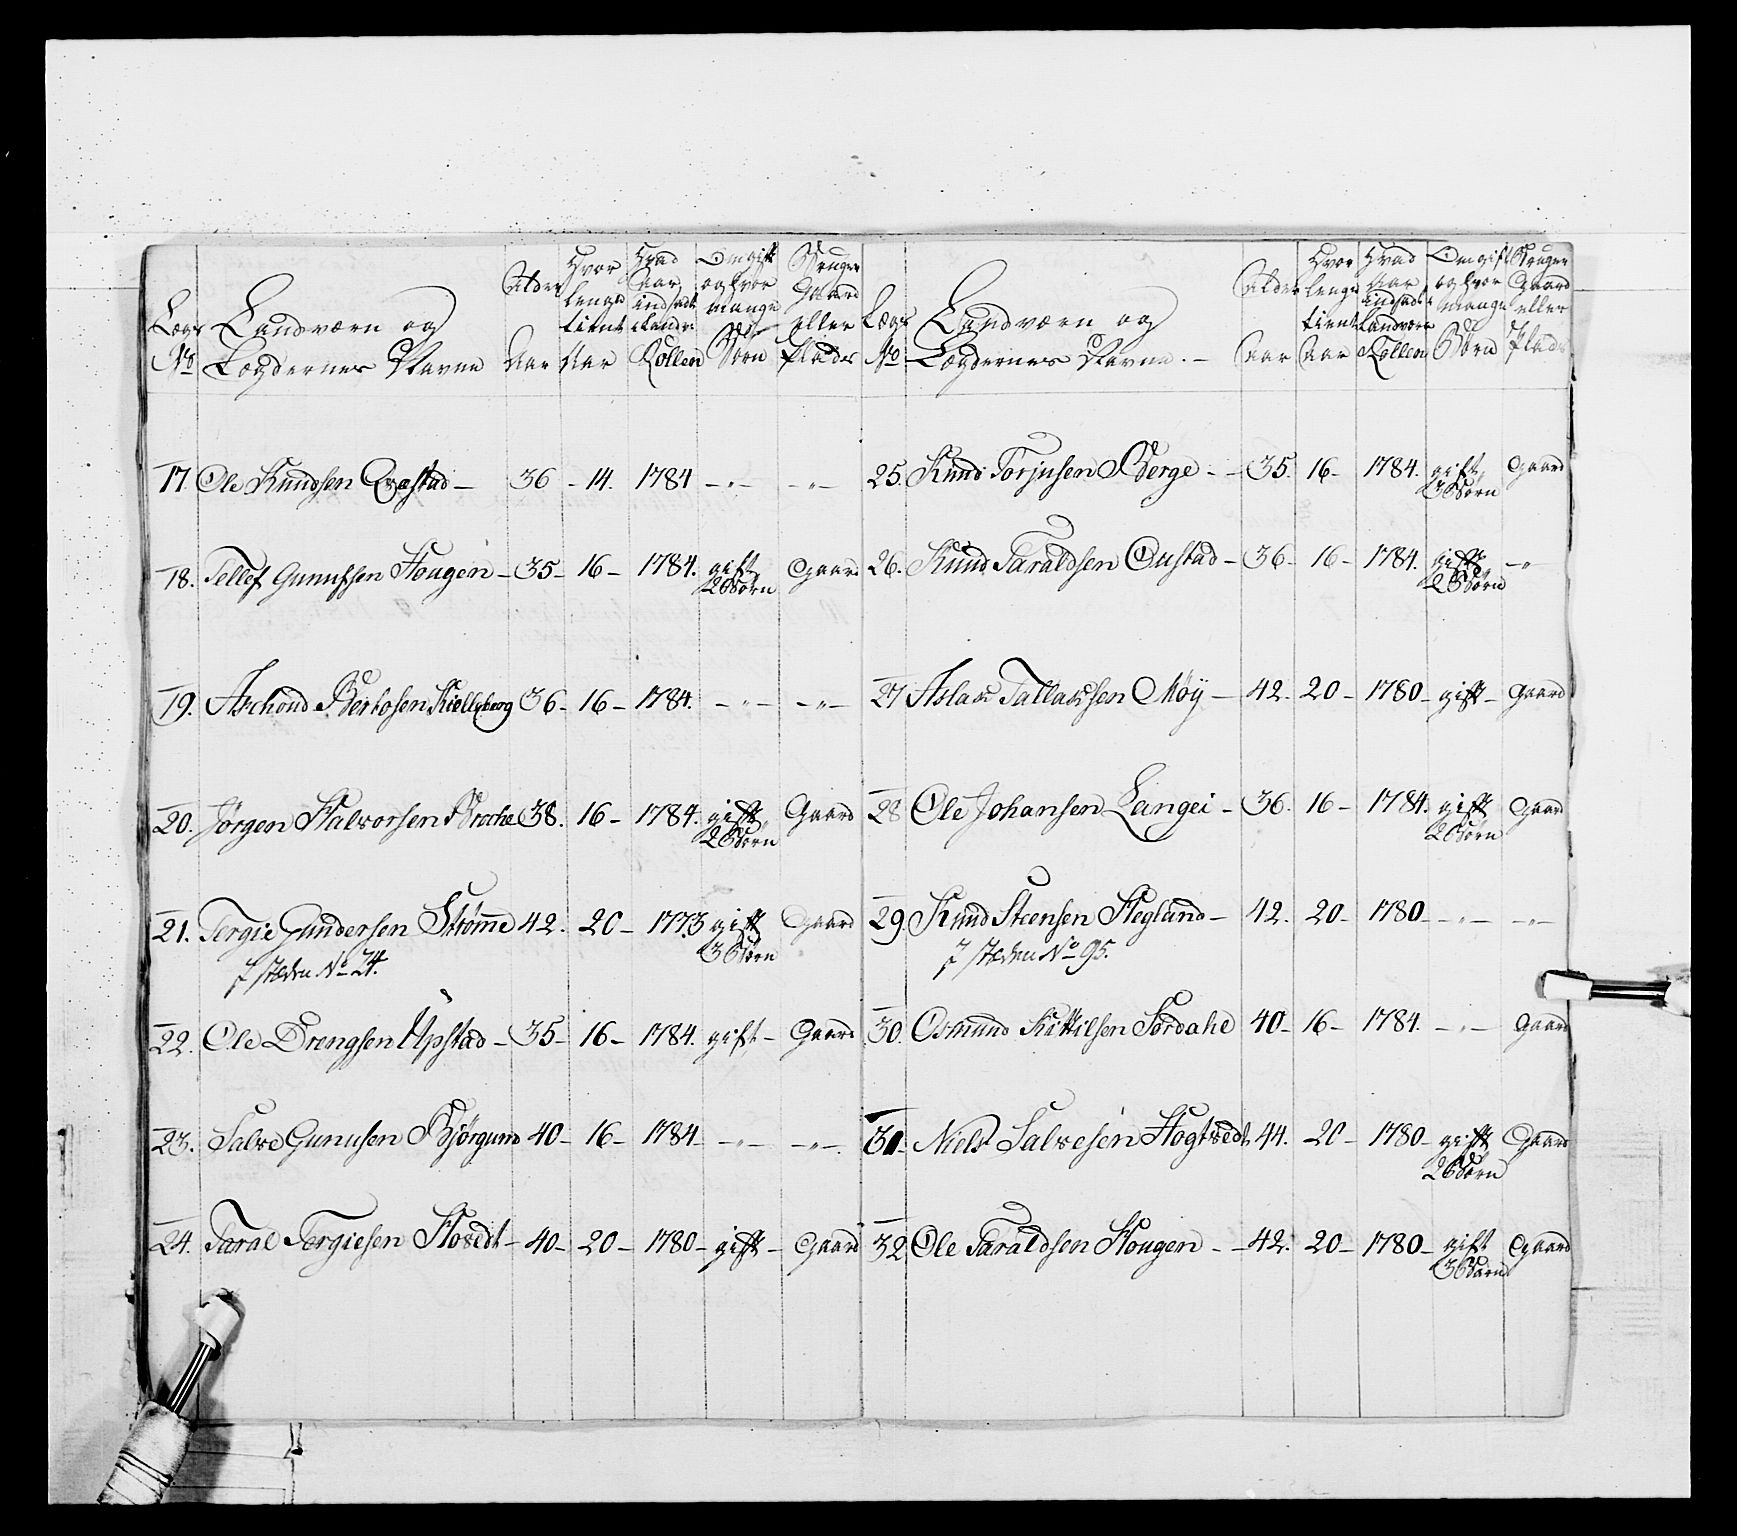 Lægs No | Landværn og Lægdernes Navne | Alder Aar | Hvor lenge tient Aar | Hvad Aar indsadt i Landv: Rollen | Om gift og hvor mange Børn | Bruger Gaard eller Plads
17. Ole Knudsen Qvastad – 36 – 14. 1784 –„– –„–
18. Tellef Gunufsen Hougen – 35 – 16 – 1784. gift Gaard
2 Børn
19. Aschoud Bertosen Kiellyberg 36 – 16 – 1784. –„– –„–
20. Jørgen Halvorsen Broche 38. 16 – 1784. gift Gaard
2 Børn
21. Tergie Gundersen Strømme 42. 20 – 1773 gift Gaard
3 Børn
I stæden No 24.
22. Ole Drengsen Upstad – 35 – 16 – 1784. gift – Gaard
23. Salve Gunusen Bjørgum 40 – 16 – 1784 –„– –„–
24. Taral Tergiesen Hovedt – 40 – 20 – 1780 – gift – Gaard
Lægs No | Landværn og Lægdernes Navne. – | Alder Aar | Hvor lenge tient Aar | Hvad Aar indsadt i Landværn Rollen | Om gift og hvor mange Børn | Bruger Gaard eller Plads
25. Knud Torjusen Berge – – 35. 16 – 1784. gift, Gaard
3 Børn
26. Knud Taraldsen Oustad – 36 – 16 – 1784. gift –„
2 Børn
27 Aslac Tallacssen Möÿ – 42. 20 – 1780 – gift – Gaard
28 Ole Johansen Langei – 36. 16 – 1784. gift Gaard
2 Børn
29. Knud Steensen Heglund – 42. 20 – 1780 –„– –„–
I stæden No 95.
30. Osmund Kittilsen Sordahl 40 – 16 – 1784. –„– Gaard
31. Niels Salvesen Hogtvedt 44. 20 – 1780 – gift Gaard
2 Børn
32 Ole Taraldsen Hougen – – 42. 20 – 1780 – gift Gaard
3 Børn